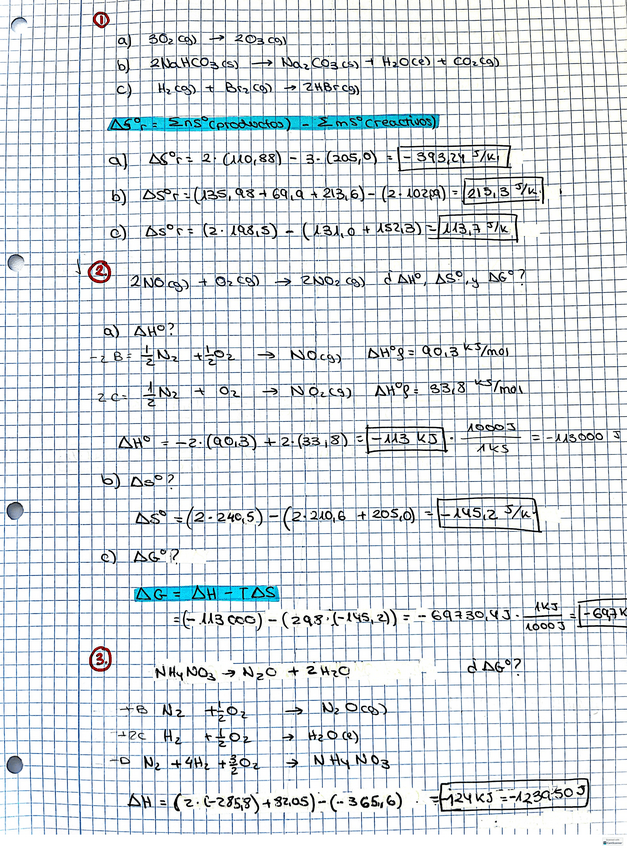 ①
a) 3O₂(g) → 2O₃(g)
b) 2NaHCO₃(s) → Na₂CO₃(s) + H₂O(l) + CO₂(g)
c) H₂(g) + Br₂(g) → 2HBr(g)
ΔS°r = ΣnS°(productos) - ΣmS°(reactivos)
a) ΔS°r = 2·(110,88) - 3·(205,0) = -393,24 J/K
b) ΔS°r = (135,98 + 69,9 + 213,6) - (2·102,9) = 213,3 J/K
c) ΔS°r = (2·198,5) - (131,0 + 152,3) = 113,7 J/K
②
2NO(g) + O₂(g) → 2NO₂(g) ¿ΔH°, ΔS°, y ΔG°?
a) ΔH°?
-2B = ½N₂ + ½O₂ → NO(g) ΔH°f = 90,3 KJ/mol
2C = ½N₂ + O₂ → NO₂(g) ΔH°f = 33,8 KJ/mol
ΔH° = -2·(90,3) + 2·(33,8) = -113 KJ · 1000J/1KJ = -113000 J
b) ΔS°?
ΔS° = (2·240,5) - (2·210,6 + 205,0) = -145,2 J/K
c) ΔG°?
ΔG = ΔH - TΔS
= (-113000) - (298·(-145,2)) = -69730,4J · 1KJ/1000J = -69,7K
③
NH₄NO₃ → N₂O + 2H₂O ¿ΔG°?
+B N₂ + ½O₂ → N₂O(g)
+2C H₂ + ½O₂ → H₂O(l)
-D N₂ + 4H₂ + 3/2O₂ → NH₄NO₃
ΔH = (2·(-285,8) + 82,05) - (-365,6) = -124KJ = -123950J